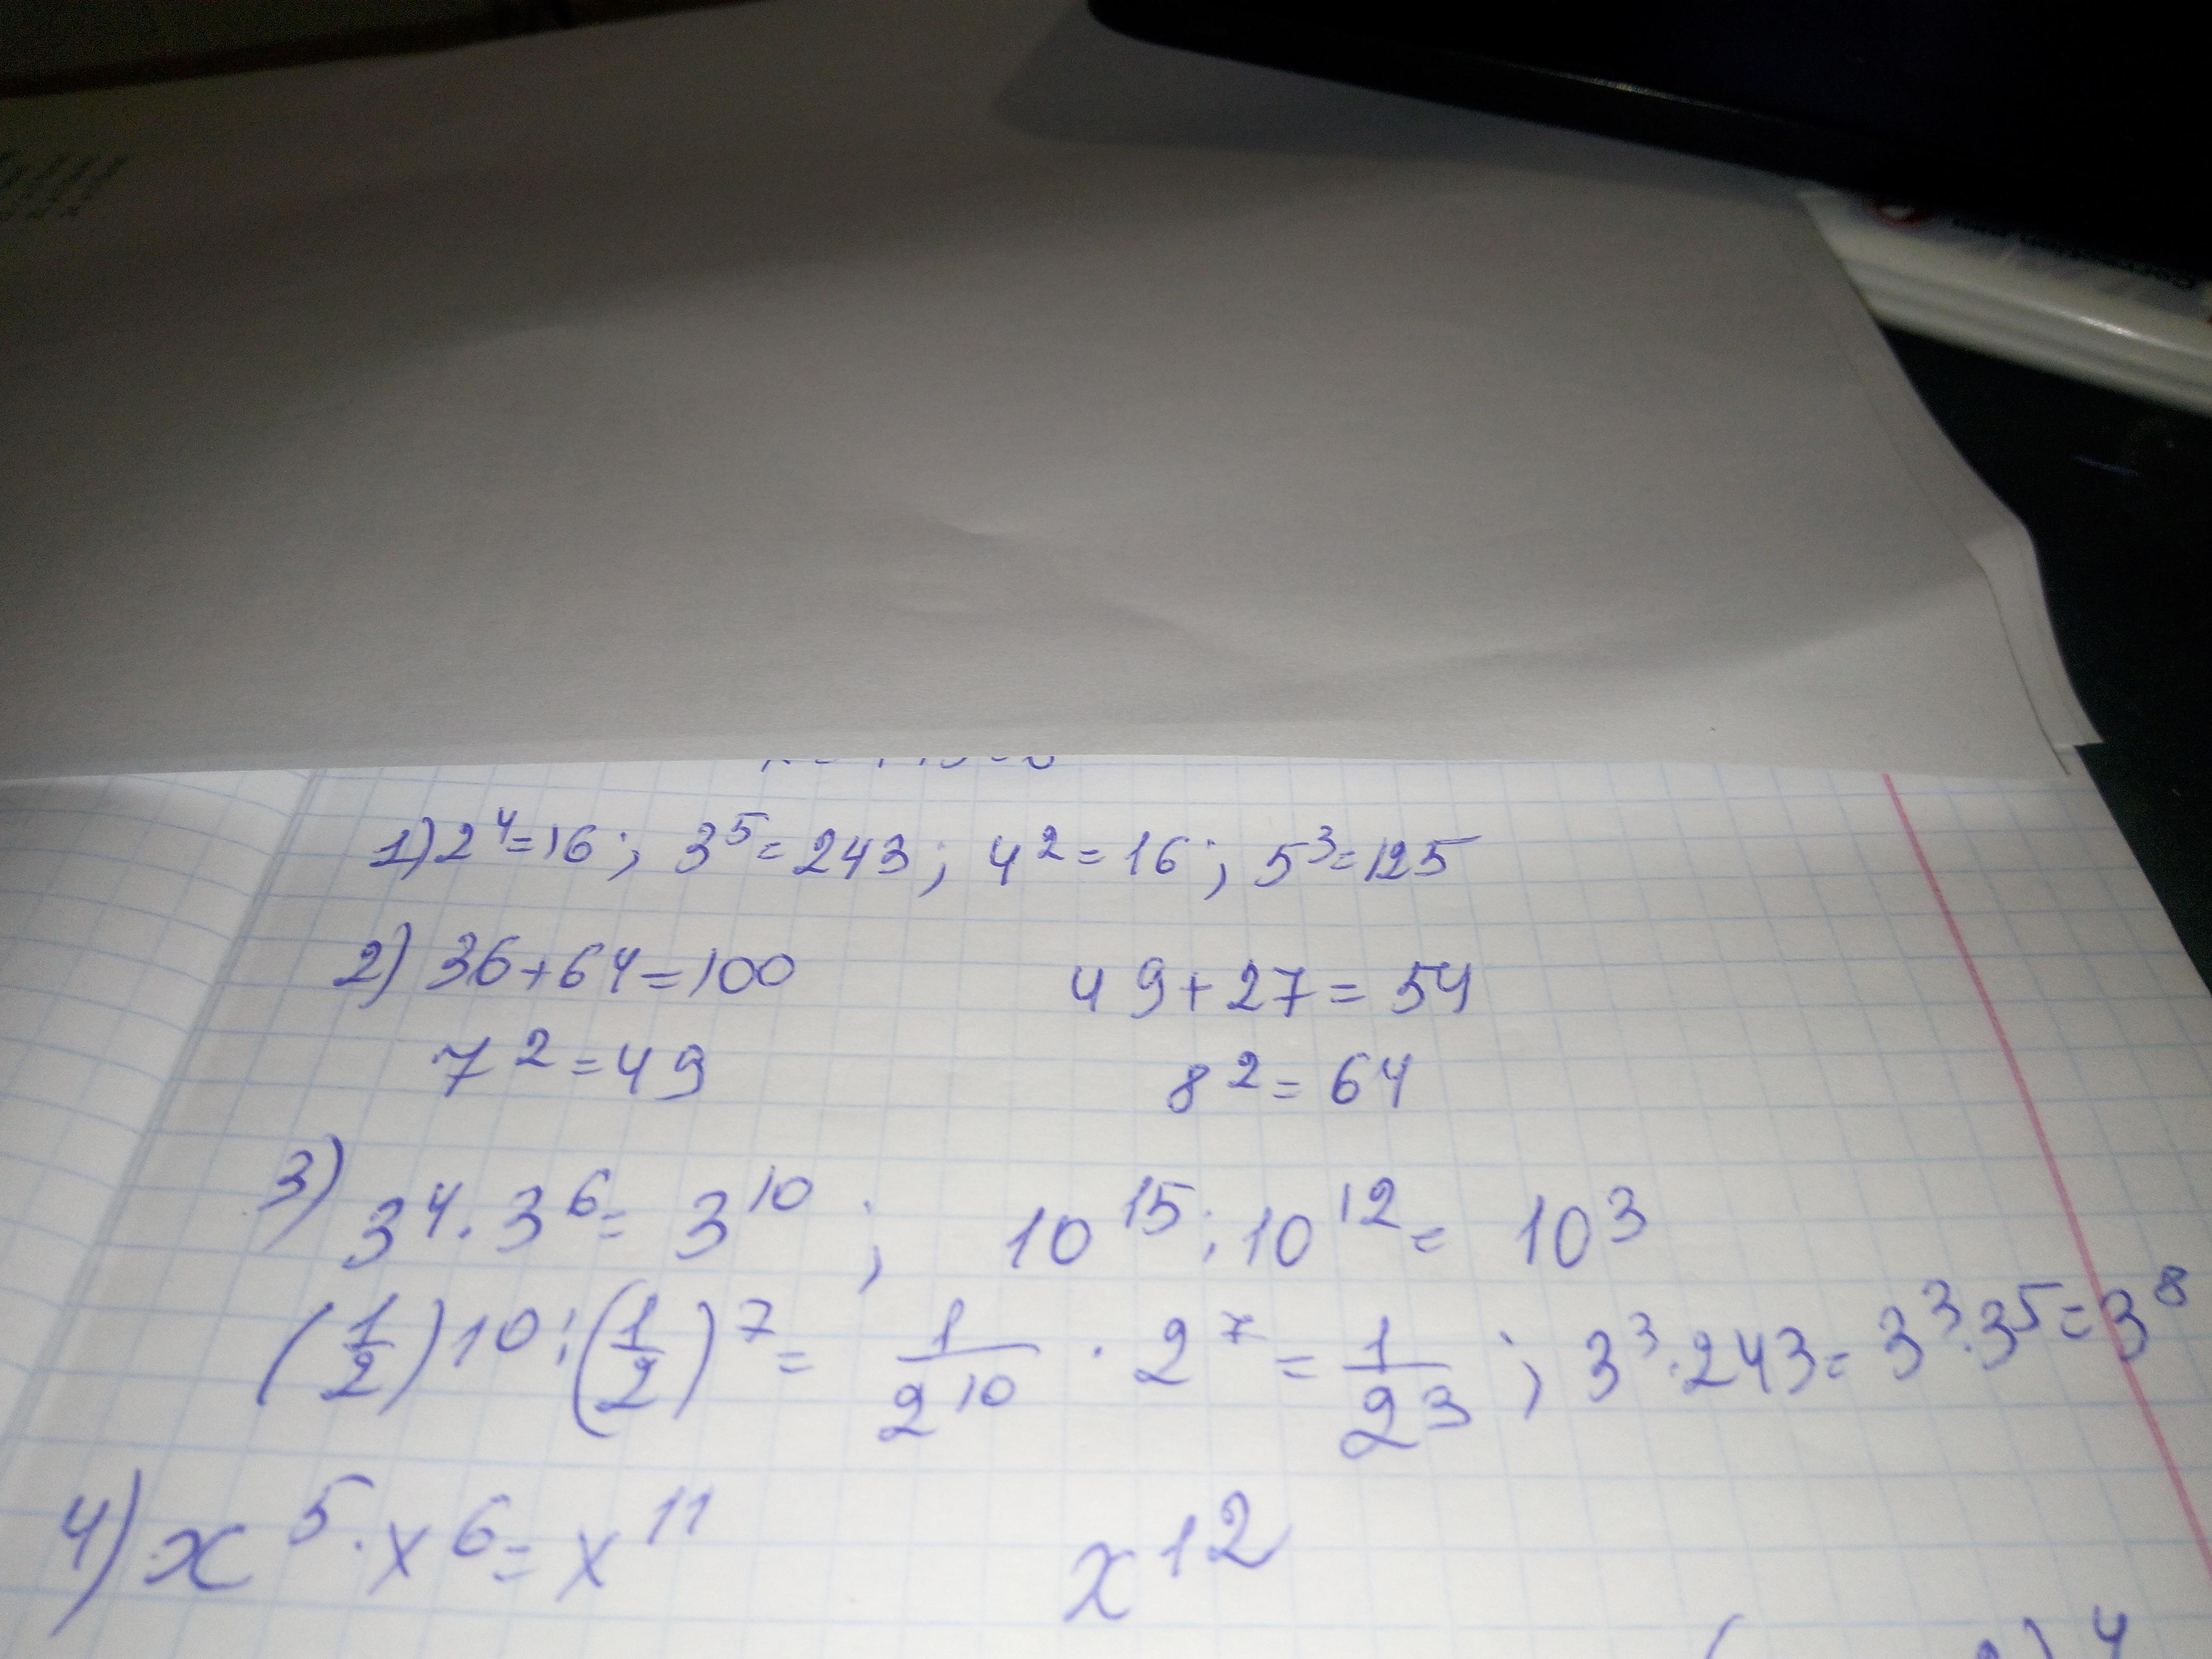 1) 2⁴=16; 3⁵=243; 4²=16; 5³=125
2) 36+64=100 49+27=54
7²=49 8²=64
3) 3⁴·3⁶=3¹⁰; 10¹⁵:10¹²=10³
(1/2)¹⁰:(1/2)⁷=1/2¹⁰·2⁷=1/2³; 3³·243=3³·3⁵=3⁸
4) x⁵·x⁶=x¹¹ x¹²